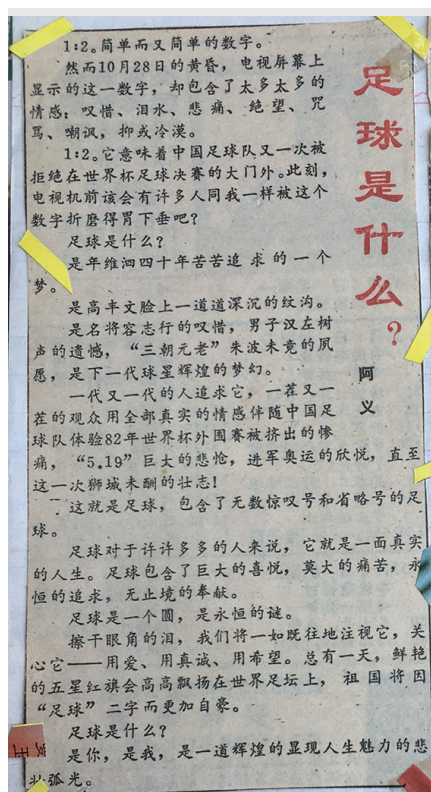 足球是什么?
阿义
1:2。简单而又简单的数字。
然而10月28日的黄昏,电视屏幕上
显示的这一数字,却包含了太多太多的
情感:叹惜、泪水、悲痛、绝望、咒
骂、嘲讽,抑或冷漠。
1:2。它意味着中国足球队又一次被
拒绝在世界杯足球决赛的大门外。此刻,
电视机前该会有许多人同我一样被这个
数字折磨得胃下垂吧?
足球是什么?
是年维泗四十年苦苦追求的一个
梦。
是高丰文脸上一道道深沉的纹沟。
是名将容志行的叹惜,男子汉左树
声的遗憾,“三朝元老”朱波未竟的夙
愿,是下一代球星辉煌的梦幻。
一代又一代的人追求它,一茬又一
茬的观众用全部真实的情感伴随中国足
球队体验82年世界杯外围赛被挤出的惨
痛,“5.19”巨大的悲怆,进军奥运的欣悦,直至
这一次狮城未酬的壮志!
这就是足球,包含了无数惊叹号和省略号的足
球。
足球对于许许多多的人来说,它就是一面真实
的人生。足球包含了巨大的喜悦,莫大的痛苦,永
恒的追求,无止境的奉献。
足球是一个圆,是永恒的谜。
擦干眼角的泪,我们将一如既往地注视它,关
心它——用爱、用真诚、用希望。总有一天,鲜艳
的五星红旗会高高飘扬在世界足坛上,祖国将因
“足球”二字而更加自豪。
足球是什么?
是你,是我,是一道辉煌的显现人生魅力的悲
壮弧光。